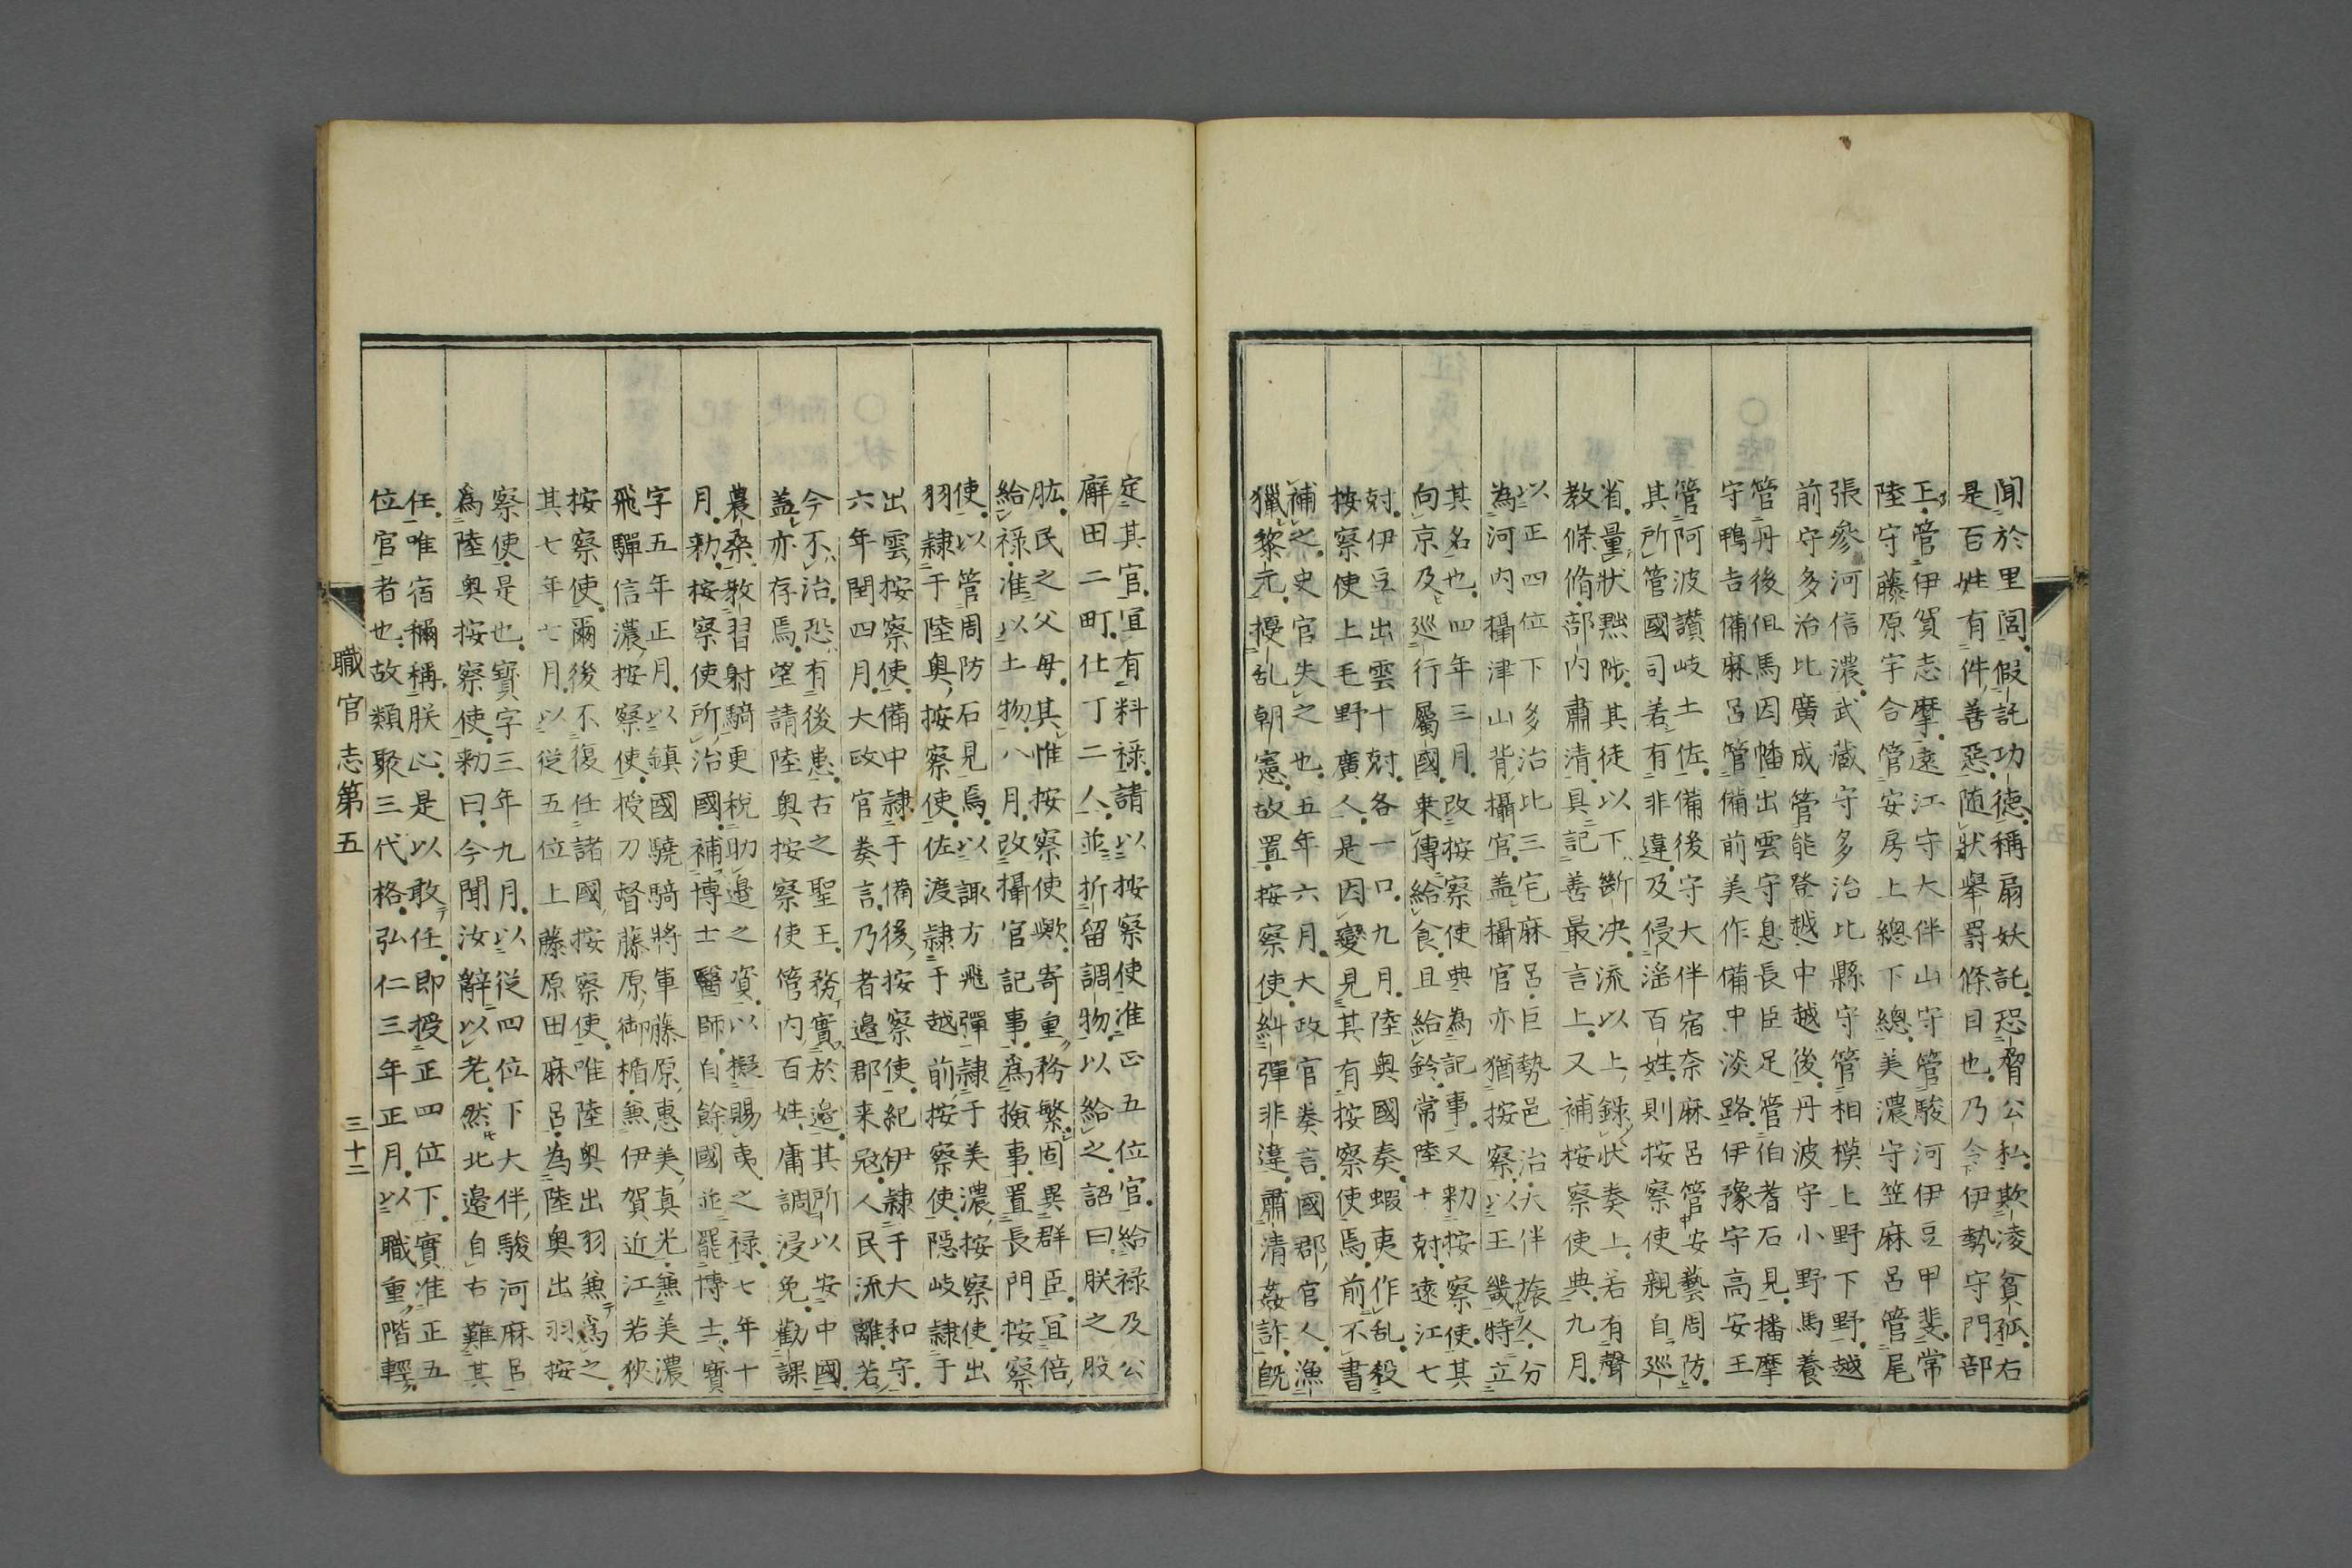 聞於里閭假託功德稱扇妖訛恐脅公私欺凌貧孤右
是百姓有件善惡随狀舉罰條目也乃令伊勢守門部
王管伊賀志摩遠江守大伴山守管駿河伊豆甲斐常
陸守藤原宇合管安房上總下總美濃守笠麻呂管尾
張參河信濃武藏守多治比縣守管相模上野下野越
前守多治比廣成管能登越中越後丹波守小野馬養
管丹後但馬因幡出雲守息長臣足管伯耆石見播摩
守鴨吉備麻呂管備前美作備中淡路伊豫守高安王
管阿波讃岐土佐備後守大伴宿奈麻呂管安藝周防
其所管國司若有非違及侵淫百姓則按察使親自巡
省量狀黜陟其徒以下斷决流以上錄状奏上若有聲
教條脩部内肅清具記善最言上又補按察使典九月
以正四位下多治比三宅麻呂巨勢邑治大伴旅人分
為河内攝津山背攝官盖攝官亦猶按察以王畿特立
其名也四年三月改按察使典為記事又勅按察使其
向京及巡行屬國乘傳給食且給鈴常陸十尅遠江七
尅伊豆出雲十尅各一口九月陸奥國奏蝦夷作乱殺
按察使上毛野廣人是因變見其有按察使焉前不書
補之史官失之也五年六月大政官奏言國郡官人漁
獵黎元擾乱朝憲故置按察使糾彈非違肅清姦詐既
定其官宜有料禄請以按察使准正五位官給禄及公
廨田二町仕丁二人並折留調物以給之詔曰朕之股
肱民之父母其惟按察使歟寄重務繁固異群臣宜倍
給禄准以土物八月改攝官記事為撿事置長門按察
使以管周防石見焉以諏方飛彈隷于美濃按察使出
羽隷于陸奥按察使佐渡隷于越前按察使隠岐隷于
出雲按察使備中隷于備後按察使紀伊隷于大和守
六年閏四月大政官奏言乃者邉郡来冦人民流離若
今不治恐有後患古之聖王務實於邉其所以安中國
盖亦存焉望請陸奥按察使管内百姓庸調浸免勸課
農桑教習射騎更税助邉之資以擬賜夷之禄七年十
月勅按察使所治國補博士醫師自餘國並罷博士寳
字五年正月以鎮國驍騎將軍藤原惠美真光兼美濃
飛驒信濃按察使授刀督藤原御楯兼伊賀近江若狹
按察使爾後不復任諸國按察使唯陸奥出羽兼為之
其七年七月以従五位上藤原田麻呂為陸奥出羽按
察使是也寳字三年九月以従四位下大伴駿河麻呂
為陸奥按察使勅曰今聞汝辭以老然北邉自古難其
任唯宿禰稱朕心是以敢任即授正四位下實准正五
位官者也故類聚三代格弘仁三年正月以職重階輕
職官志第五
三十二